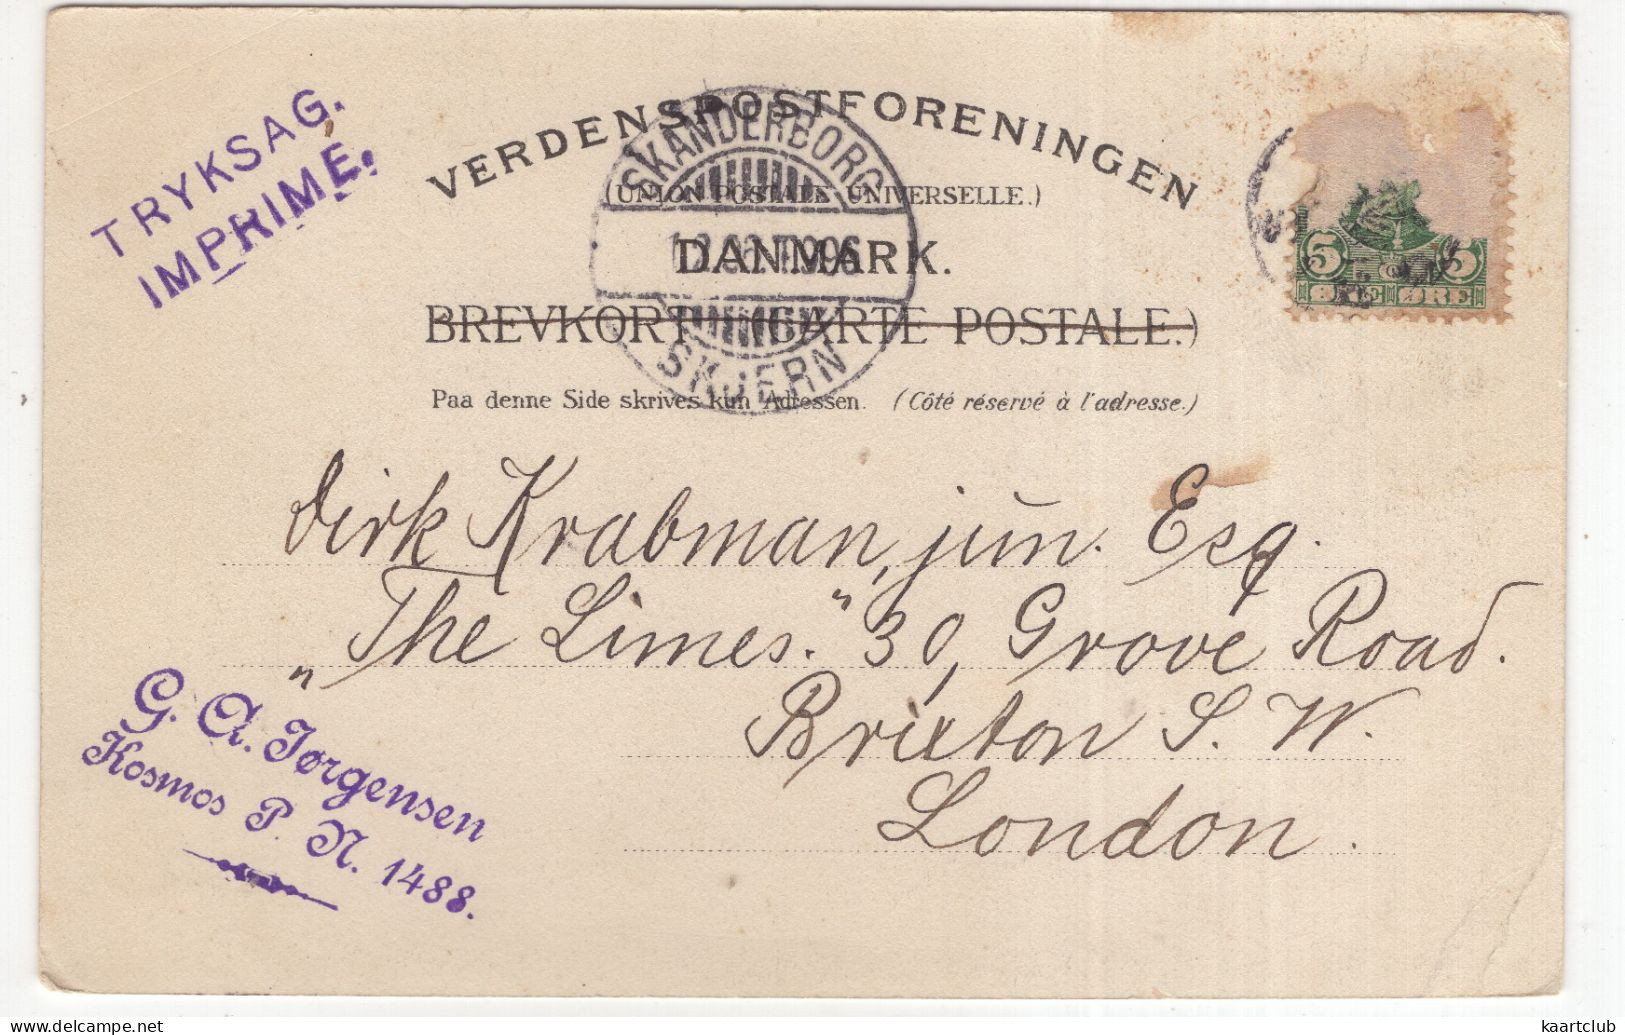 TRYKSAG.
IMPRIMÉ.
VERDENSPOSTFORENINGEN
(UNION POSTALE UNIVERSELLE.)
DANMARK.
BREVKORT (CARTE POSTALE.)
Paa denne Side skrives kun Adressen. (Côté réservé à l'adresse.)
SKANDERBORG
SKJERN
5 5
ØRE ØRE
Dirk Krabman, jun. Esq.
„The Limes.“ 30, Grove Road.
Brixton S. W.
London.
G. A. Jørgensen
Kosmos P. N. 1488.
kaartclub